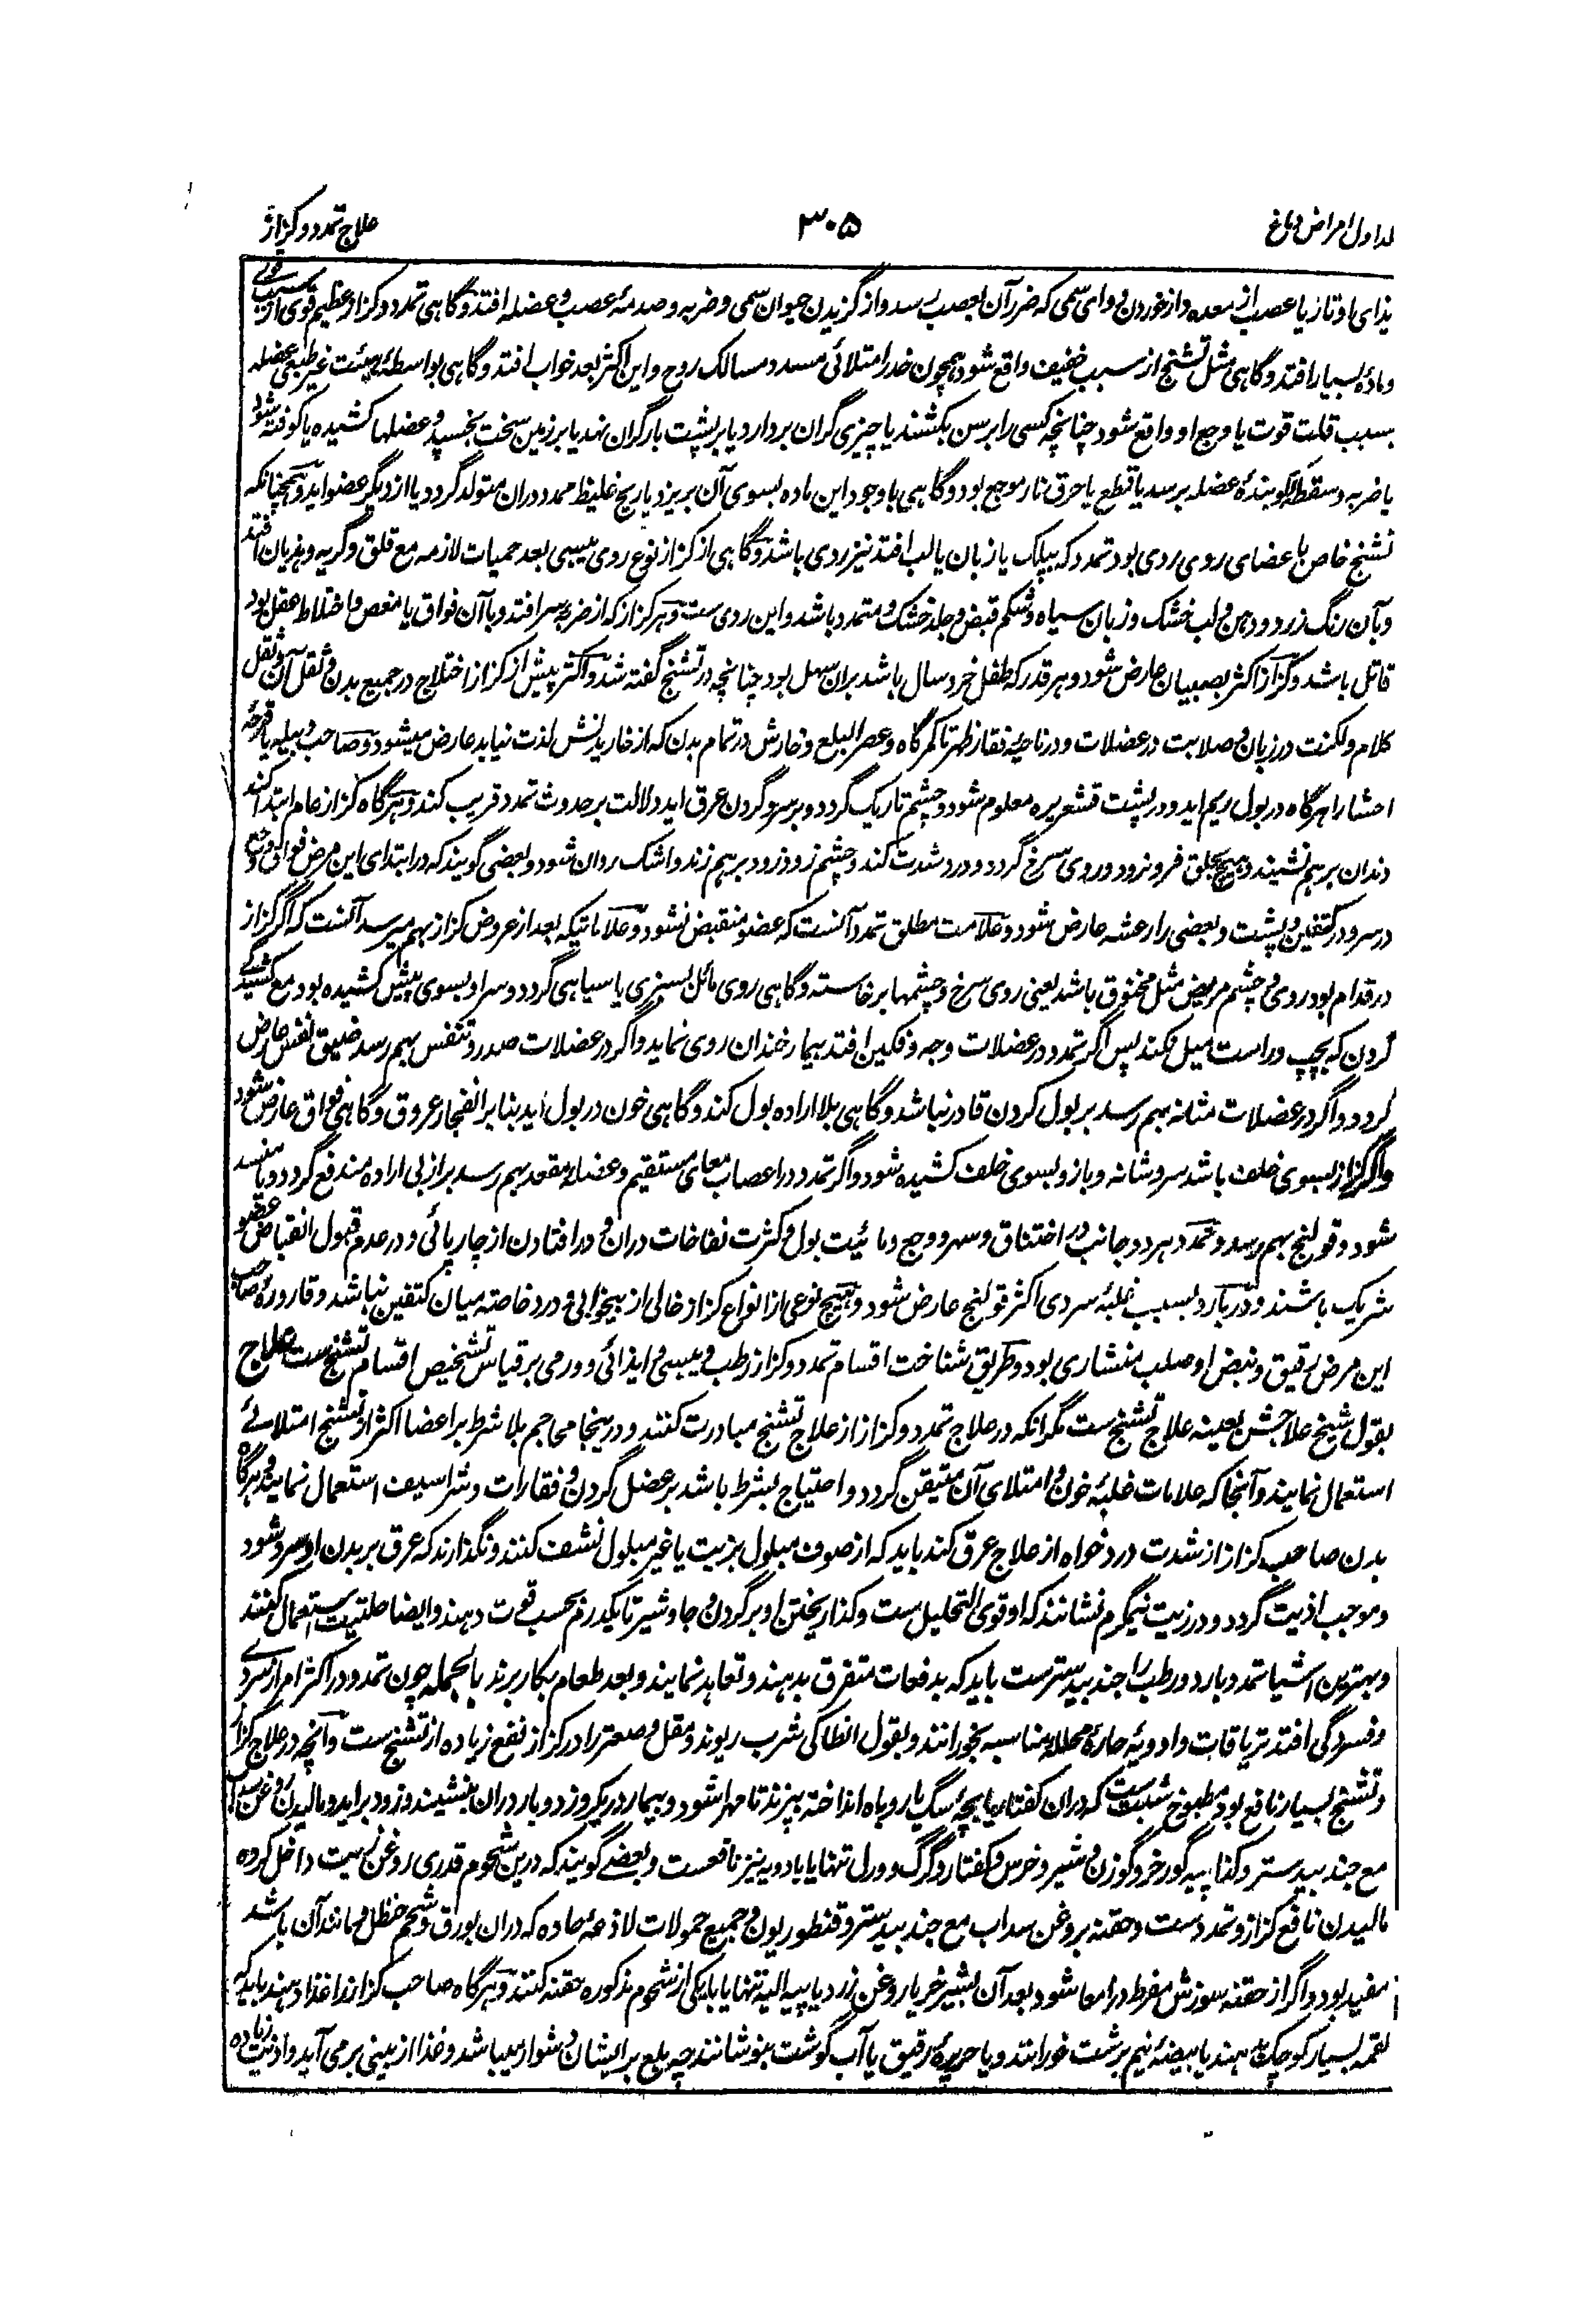 جلد اول امراض دماغ ۳۰۵ علاج تمدد و کزاز
یذای اوتار یا عصب از معده و از خوردن دوای سمی که ضرر آن بعصب رسد و از گزیدن حیوان سمی و ضربه و صدمهٔ عصب و عضله افتد و گاهی تمدد و کزاز عظیم قوی از سبب قوی
و مادهٔ بسیار افتد و گاهی مثل تشنج از سبب خفیف واقع شود همچون خدر امتلائی مسدد مسالک روح و این اکثر بعد خواب افتد و گاهی بواسطهٔ هیئت غیر طبعی عضله
بسبب قلت قوت یا وجع او واقع شود چنانچه کسی را برسن بکشند یا چیزی گران بردارد یا بر پشت بار گران نهد یا بر زمین سخت بخسپد و عضلها کشیده یا کوفته شود
یا ضربه و سقطهٔ کوبندهٔ عضله برسد یا قطع یا حرق نار موجع بود و گاهی باوجود این ماده بسوی آن بریزد یا ریح غلیظ ممدد دران متولد گردد یا از دیگر عضو اید و همچنانکه
تشنج خاص باعضای روی ردی بود تمدد که بپلک یا زبان یا لب افتد نیز ردی باشد و گاهی از کزاز نوع ردی یبسی بعد حمیات لازمه مع قلق و گریه و هذیان افتد
و بآن رنگ زرد و دهن و لب خشک و زبان سیاه و شکم قبض و جلد خشک و متمدد باشد و این ردی ست و هر کزاز که از ضربهٔ سر افتد و بآن فواق یا مغص و اختلاط عقل بود
قاتل باشد و کزاز اکثر بصبیان عارض شود و هر قدر که طفل خرد سال باشد بران سهل بود چنانچه در تشنج گفته شد و اکثر پیش از کزاز اختلاج در جمیع بدن و ثقل آن و ثقل
کلام و لکنت در زبان و صلابت در عضلات و در ناحیهٔ فقار ظهر تا کمرگاه و عسر البلع و خارش در تمام بدن که از خاریدنش لذت نیابد عارض میشود و صاحب دبیله یا قرحهٔ
احشا را هرگاه در بول ریم اید و در پشت قشعریره معلوم شود و چشم تاریک گردد و بر سر و گردن عرق اید دلالت بر حدوث تمدد قریب کند و هرگاه کزاز عام ابتدا کند
دندان بر هم نشیند و هیچ بحلق فرو نرود و روی سرخ گردد و درد شدت کند و چشم زود زود بر هم زند و اشک روان شود و بعضی گویند که در ابتدای این مرض فواق و
در سر و در کتفین و پشت و بعضی را رعشه عارض شود و علامت مطلق تمدد آنست که عضو منقبض نشود و علاماتیکه بعد از عروض کزاز بهم میرسد آنست که اگر کزاز
در قدام بود روی و چشم مریض مثل مخنوق باشد یعنی روی سرخ و چشمها برخاسته و گاهی روی مائل بسبزی یا سیاهی گردد و سر او بسوی پیش کشیده بود مع کشیدگی
گردن که بچپ و راست میل نکند پس اگر تمدد در عضلات وجه و فکین افتد بیمار خندان روی نماید و اگر در عضلات صدر و تنفس بهم رسد ضیق نفس عارض
گردد و اگر در عضلات مثانه بهم رسد بر بول کردن قادر نباشد و گاهی بلا اراده بول کند و گاهی خون در بول اید بنا بر انفجار عروق و گاهی فواق عارض شود
و اگر کزاز بسوی خلف باشد سر و شانه و بازو بسوی خلف کشیده شود و اگر تمدد در اعصاب معای مستقیم و عضلهٔ مقعد بهم رسد براز بی اراده مندفع گردد و یا منسد
شود و قولنج بهم رسد و تمدد هر دو جانب در اختناق و سهر و وجع و مائیت بول و کثرت نفاخات دران و در افتادن از چارپائی و در عدم قبول انقباض عضو
شریک باشند و در بارد بسبب غلبهٔ سردی اکثر قولنج عارض شود و هیچ نوعی از انواع کزاز خالی از بیخوابی و درد خاصته میان کتفین نباشد و قارورهٔ صاحب
این مرض رقیق و نبض او صلب منشاری بود و طریق شناخت اقسام تمدد و کزاز رطب و یبسی و ایذائی و ورمی بر قیاس تشخیص اقسام تشنج ست علاج
بقول شیخ علاجش بعینه علاج تشنج ست مگر آنکه در علاج تمدد و کزاز از علاج تشنج مبادرت کنند و درینجا محاجم بلا شرط بر اعضا اکثر از تشنج امتلائے
استعمال نمایند و آنجا که علامات غلبهٔ خون و امتلای آن متیقن گردد و احتیاج بشرط باشد بر عضل گردن و فقارات و شراسیف استعمال نمایند و هرگاه
بدن صاحب کزاز از شدت درد خواه از علاج عرق کند باید که از صوف مبلول بزیت یا غیر مبلول نشف کنند و نگذارند که عرق بر بدن او سرد شود
و موجب اذیت گردد و در زیت نیمگرم نشانند که او قوی التحلیل ست و کذا ریختن او بر گردن و جاوشیر تا یکدرم بحسب قوت دهند و ایضا حلتیت استعمال کنند
و بهترین اشیا تمدد بارد و رطب را جندبیدسترست باید که بدفعات متفرق بدهند و تعاهد نمایند و بعد طعام بکار برند بالجمله چون تمدد در اکثر امر از سردی
و فسردگی افتد تریاقات و ادویهٔ حارهٔ محلله مناسبه بخورانند و بقول انطاکی شرب ریوند و مقل و صعتر را در کزاز نفع زیاده از تشنج ست و آنچه در علاج کزاز
و تشنج بسیار نافع بود مطبوخ شبت ست که دران کفتار یا بچهٔ سگ یا روباه انداخته بپزند تا مهرا شود و بیمار در یکروز دو بار دران بنشیند و زود براید و مالیدن روغن سداب
مع جندبیدستر و کذا پیه گورخر و گوزن و شیر و خرس و کفتار و گرگ و ورل تنها یا بادویه نیز نافعست و بعضے گویند که درین شحوم قدری روغن زیت داخل کرده
مالیدن نافع کزاز و تمددست و حقنه بروغن سداب مع جندبیدستر و قنطوریون و جمیع حمولات لاذعهٔ حاده که دران بورق و شحم حنظل و مانند آن باشد
مفید بود و اگر از حقنه سوزش مفرط در امعا شود بعد آن بشیر خر یا روغن زرد یا پیه الیه تنها یا با یکی از شحوم مذکوره حقنه کنند و هرگاه صاحب کزاز را غذا دهند باید که
لقمهٔ بسیار کوچک دهند یا بیضهٔ نیم برشت خورانند و یا حریرهٔ رقیق یا آب گوشت بنوشانند چه بلع بر ایشان دشوار میباشد و غذا از بینی بر می آید و اذیت زیاده